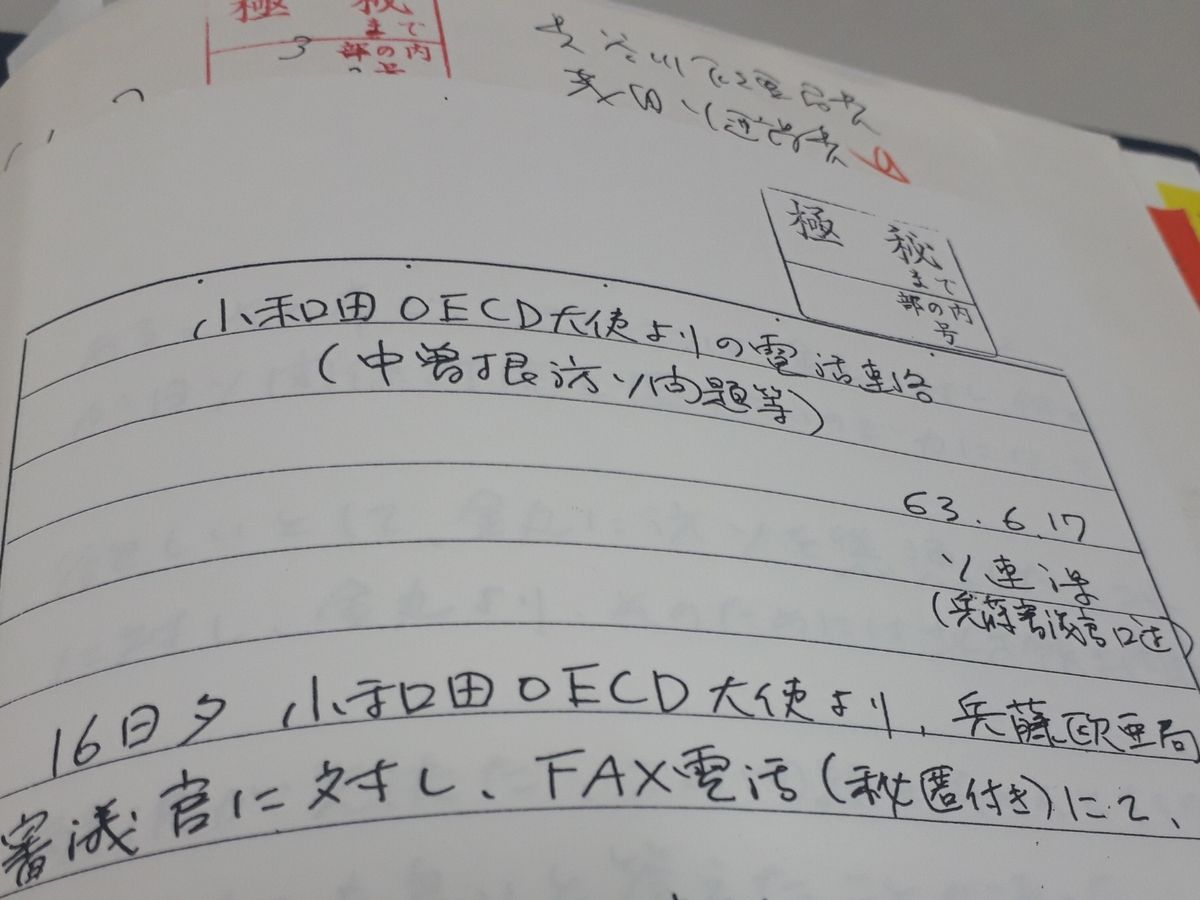 極秘
まで
3 部の内
号
極秘
まで
部の内
号
小和田OECD大使よりの電話連絡
(中曽根訪ソ問題等)
63.6.17
ソ連課
(兵藤審議官口述)
16日夕 小和田OECD大使より、兵藤欧亜局
審議官に対し、FAX電話(秘匿付き)にて、